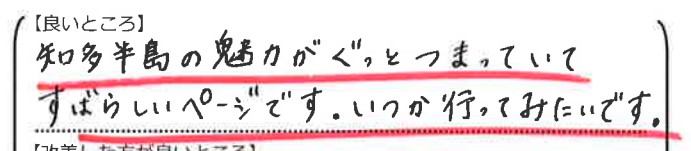 【良いところ】
知多半島の魅力がぐっとつまっていて
すばらしいページです。いつか行ってみたいです。
【改善した方が良いところ】